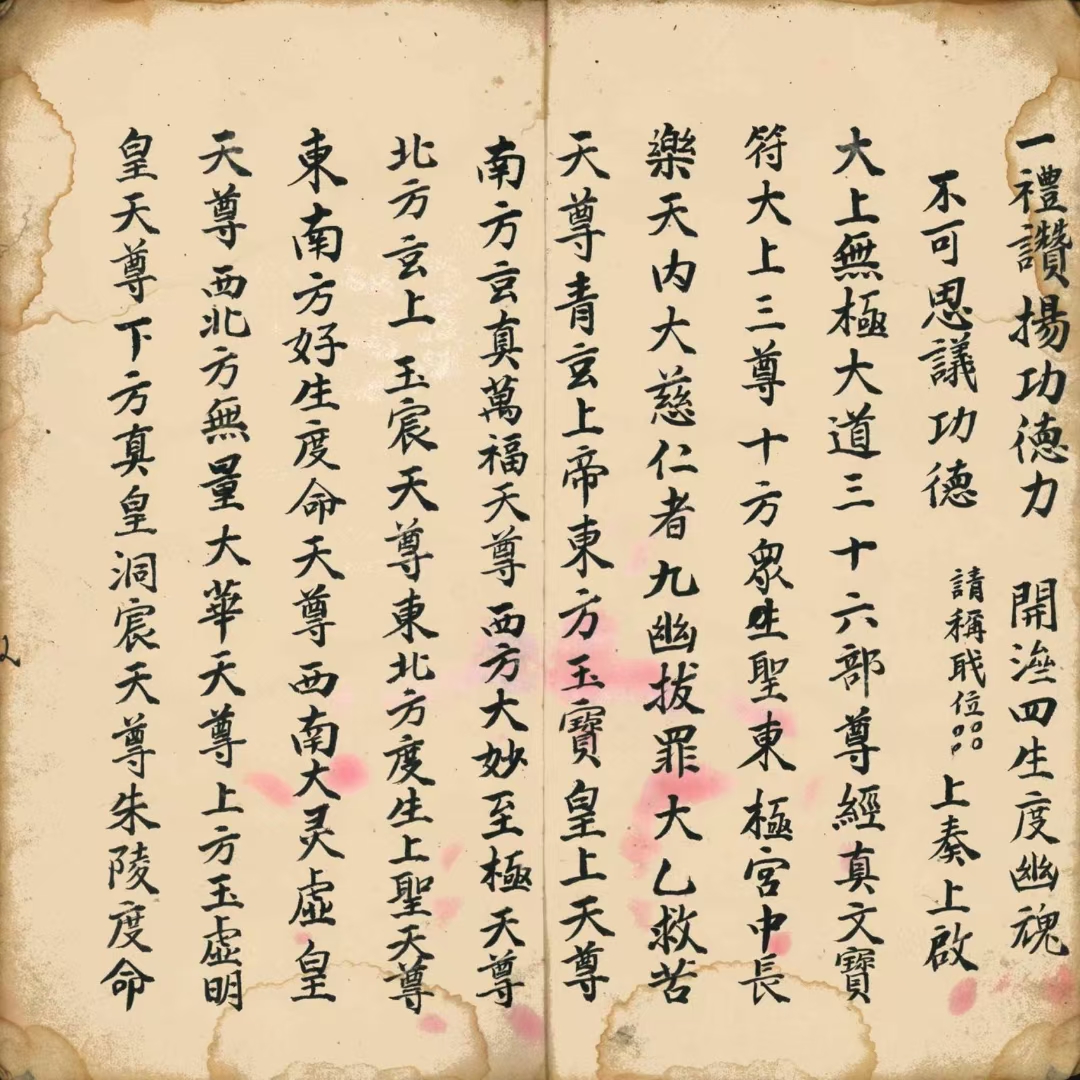 一禮讚揚功德力 開泴四生度幽魂
不可思議功德 請稱戝位 上奏上啟
大上無極大道三十六部尊經真文寶
符大上三尊十方眾生聖東極宮中長
樂天內大慈仁者九幽拔罪大乙救苦
天尊青玄上帝東方玉寶皇上天尊
南方玄真萬福天尊西方大妙至極天尊
北方玄上玉宸天尊東北方度生上聖天尊
東南方好生度命天尊西南大灵虛皇
天尊西北方無量大華天尊上方玉虛明
皇天尊下方真皇洞宸天尊朱陵度命